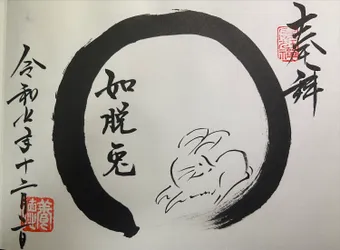 奉拝
如脱兎
令和七年十二月二日